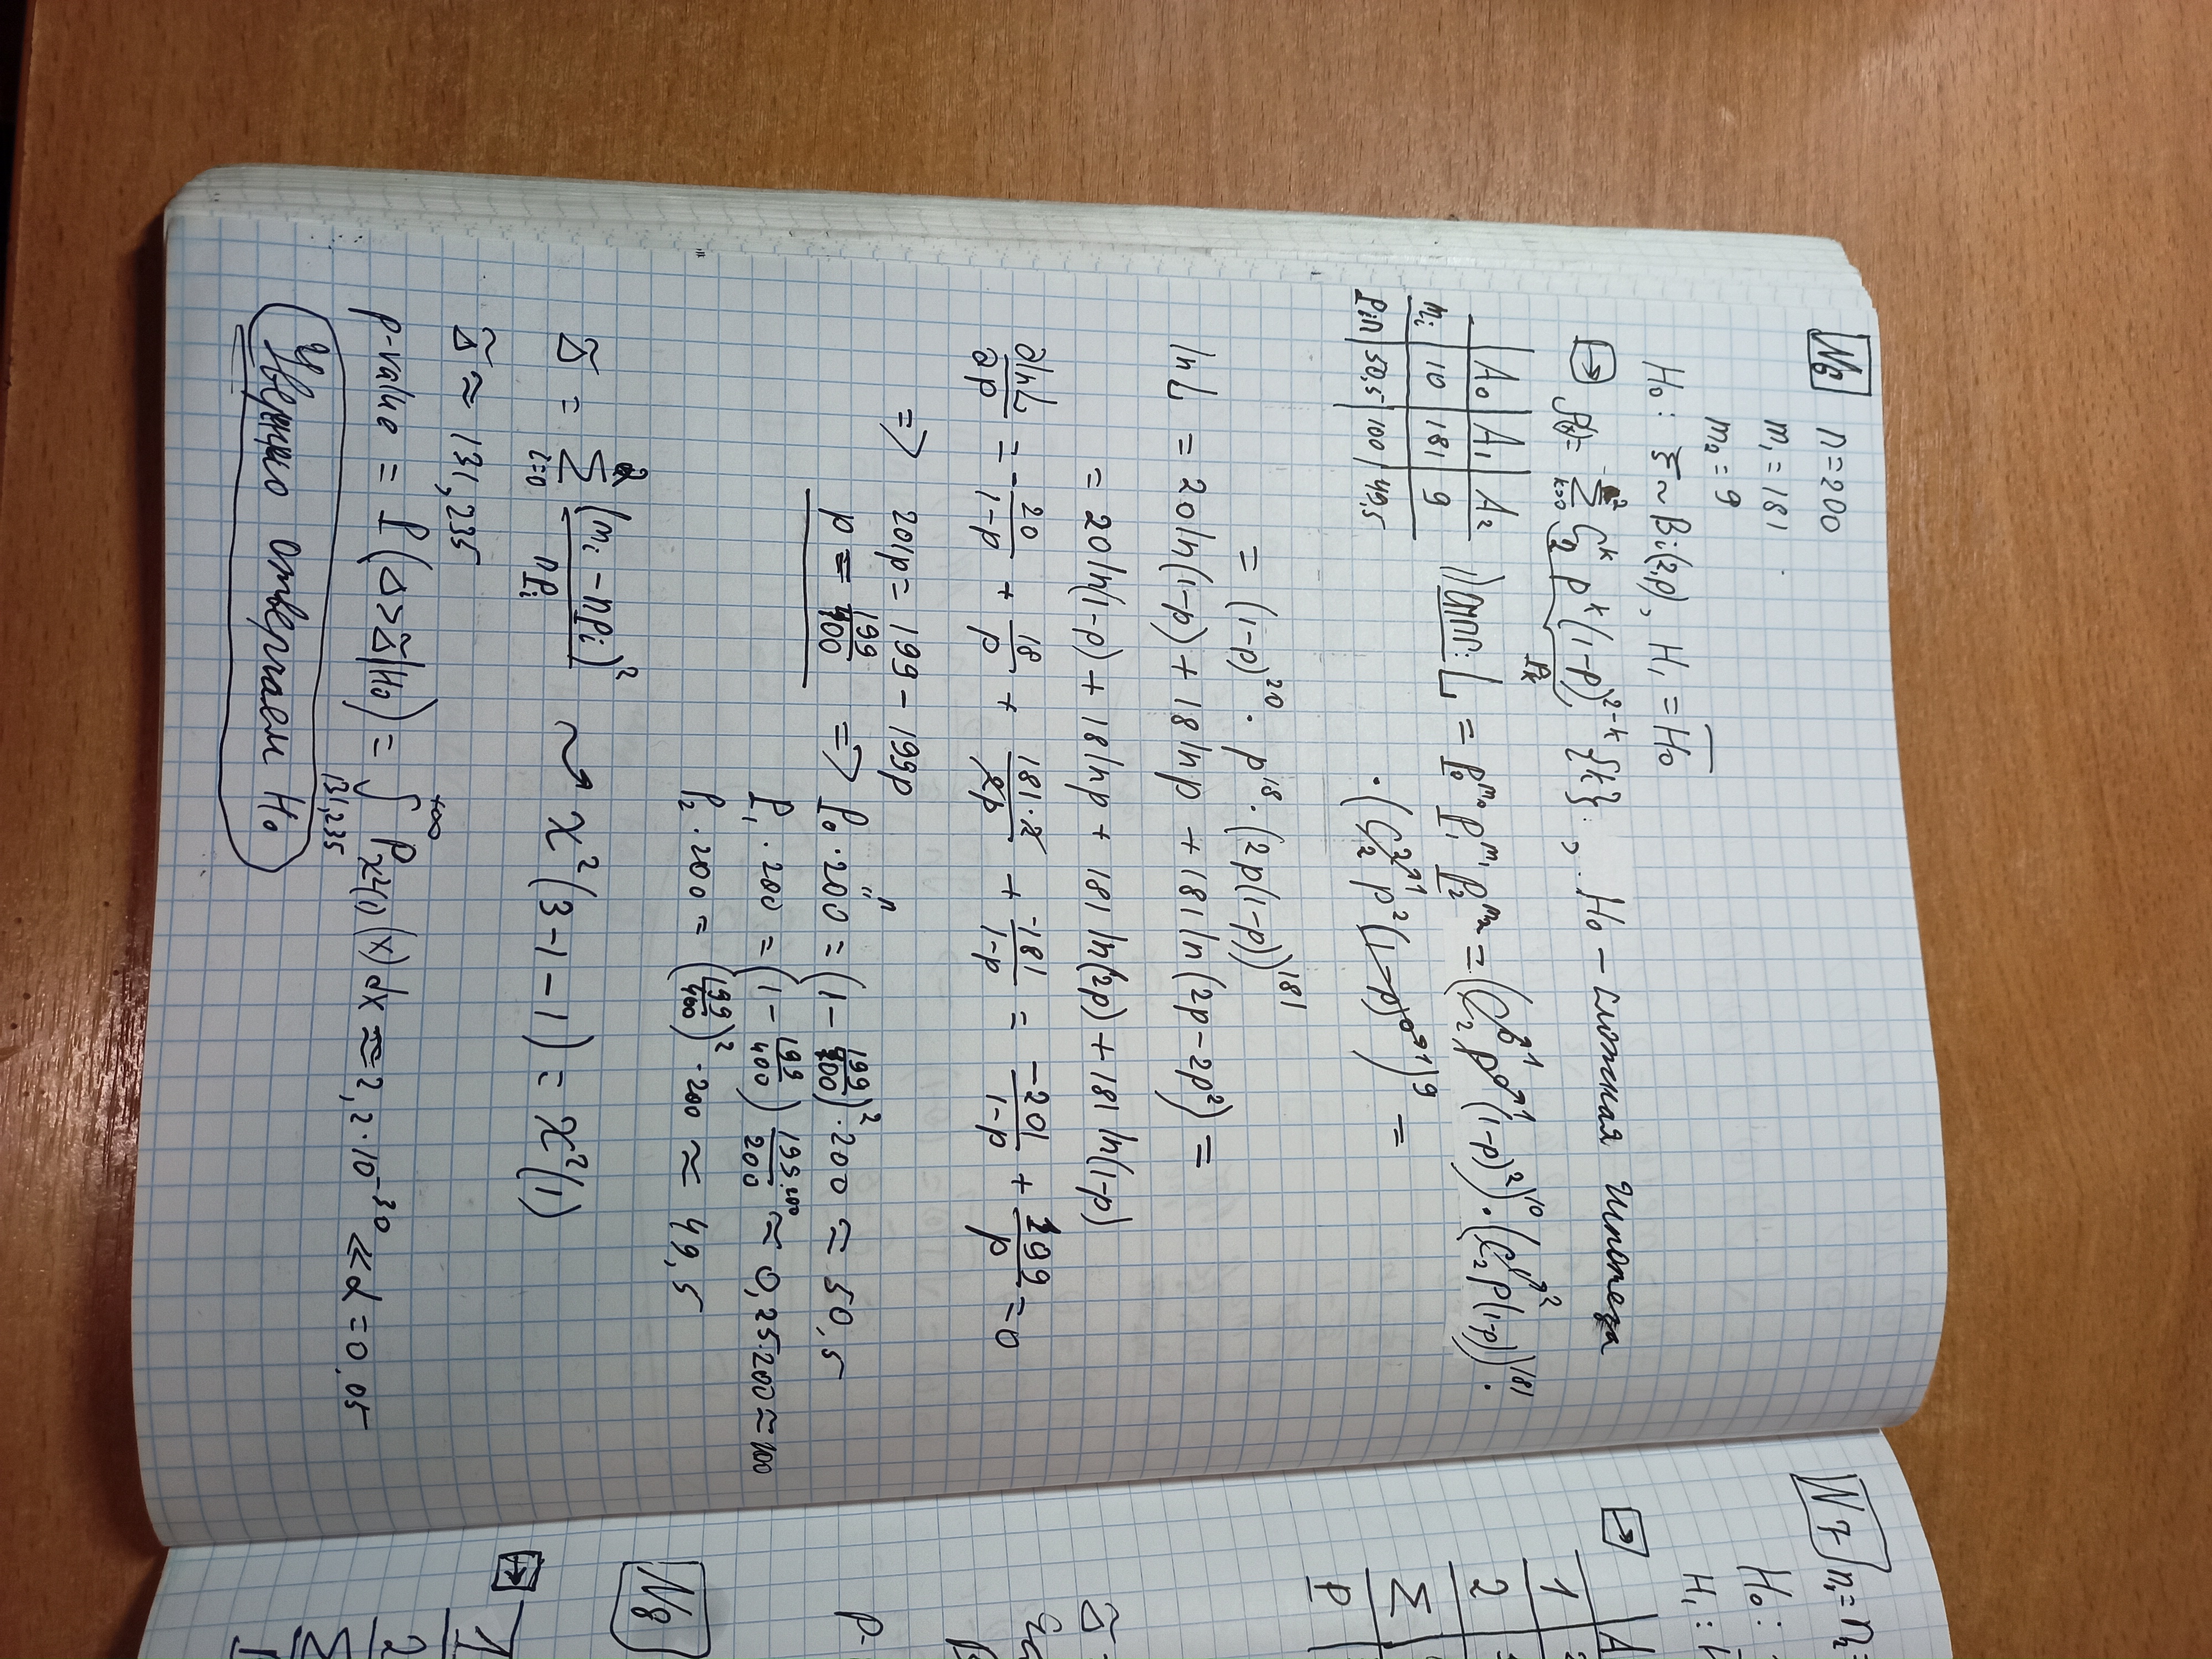 №6 n=200
m₁=181
m₂=9
H₀: ξ~Bi(2,p), H₁=H̅₀
→ P(k)= Σ_{k=0}^{2} C₂^k p^k (1-p)^{2-k} {k}, H₀ - сложная гипотеза
p_k
| A₀ | A₁ | A₂
m_i | 10 | 181 | 9
p_i n | 50,5 | 100 | 49,5
1) L = p₀^{m₀} p₁^{m₁} p₂^{m₂} = (C₂⁰^{→1} p⁰^{→1} (1-p)²)^{10} · (C₂¹^{→2} p(1-p))^{181} ·
· (C₂²^{→1} p² (1-p)⁰^{→1})⁹ =
= (1-p)^{20} · p^{18} · (2p(1-p))^{181}
ln L = 20 ln(1-p) + 18 ln p + 181 ln(2p-2p²) =
= 20 ln(1-p) + 18 ln p + 181 ln(2p) + 181 ln(1-p)
∂lnL/∂p = -20/(1-p) + 18/p + 181·2/2p + -181/(1-p) = -201/(1-p) + 199/p = 0
=> 201p = 199 - 199p
n
p = 199/400 => P₀·200 = (1 - 199/400)²·200 ≈ 50,5
P₁·200 = (1 - 199/400) 199·200/200 ≈ 0,25·200 ≈ 100
P₂·200 = (199/400)²·200 ≈ 49,5
Δ̃ = Σ_{i=0}^{2} (m_i - np_i)²/np_i ⇝ χ²(3-1-1) = χ²(1)
Δ̃ ≈ 131,235
p-value = P(Δ>Δ̃|H₀) = ∫_{131,235}^{+∞} P_{χ²(1)}(x)dx ≈ 2,2·10^{-30} ≪ α = 0,05
Уверенно отвергаем H₀
№7 n₁= n₂=
H₀:
H₁:
→ | A
1
2
Σ
P
Δ̃
P-
№8
→
1
2